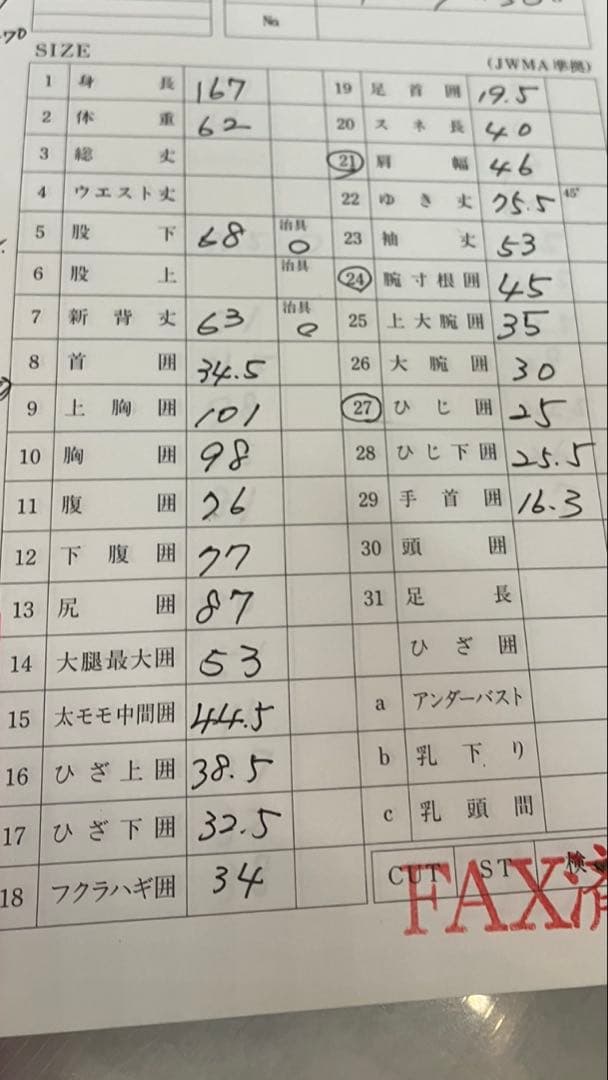 No.
SIZE
(JWMA準拠)
1 身長 167
2 体重 62
3 総丈
4 ウエスト丈
5 股下 68 治具 0
6 股上 治具
7 新背丈 63 治具 0
8 首囲 34.5
9 上胸囲 101
10 胸囲 98
11 腹囲 76
12 下腹囲 77
13 尻囲 87
14 大腿最大囲 53
15 太モモ中間囲 44.5
16 ひざ上囲 38.5
17 ひざ下囲 32.5
18 フクラハギ囲 34
19 足首囲 19.5
20 スネ長 40
21 肩幅 46
22 ゆき丈 75.5 45°
23 袖丈 53
24 腕寸根囲 45
25 上大腕囲 35
26 大腕囲 30
27 ひじ囲 25
28 ひじ下囲 25.5
29 手首囲 16.3
30 頭囲
31 足長
ひざ囲
a アンダーバスト
b 乳下り
c 乳頭間
CUT ST 検
FAX済